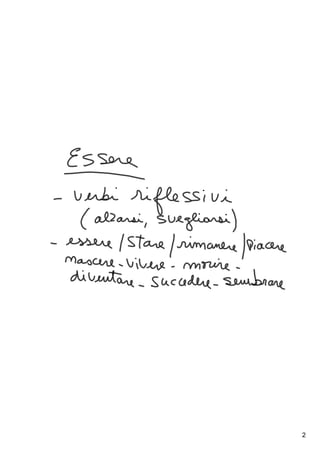 Essere
- verbi riflessivi
(alzarsi, svegliarsi)
- essere / stare / rimanere / piacere
nascere - vivere - morire -
diventare - succedere - sembrare
2